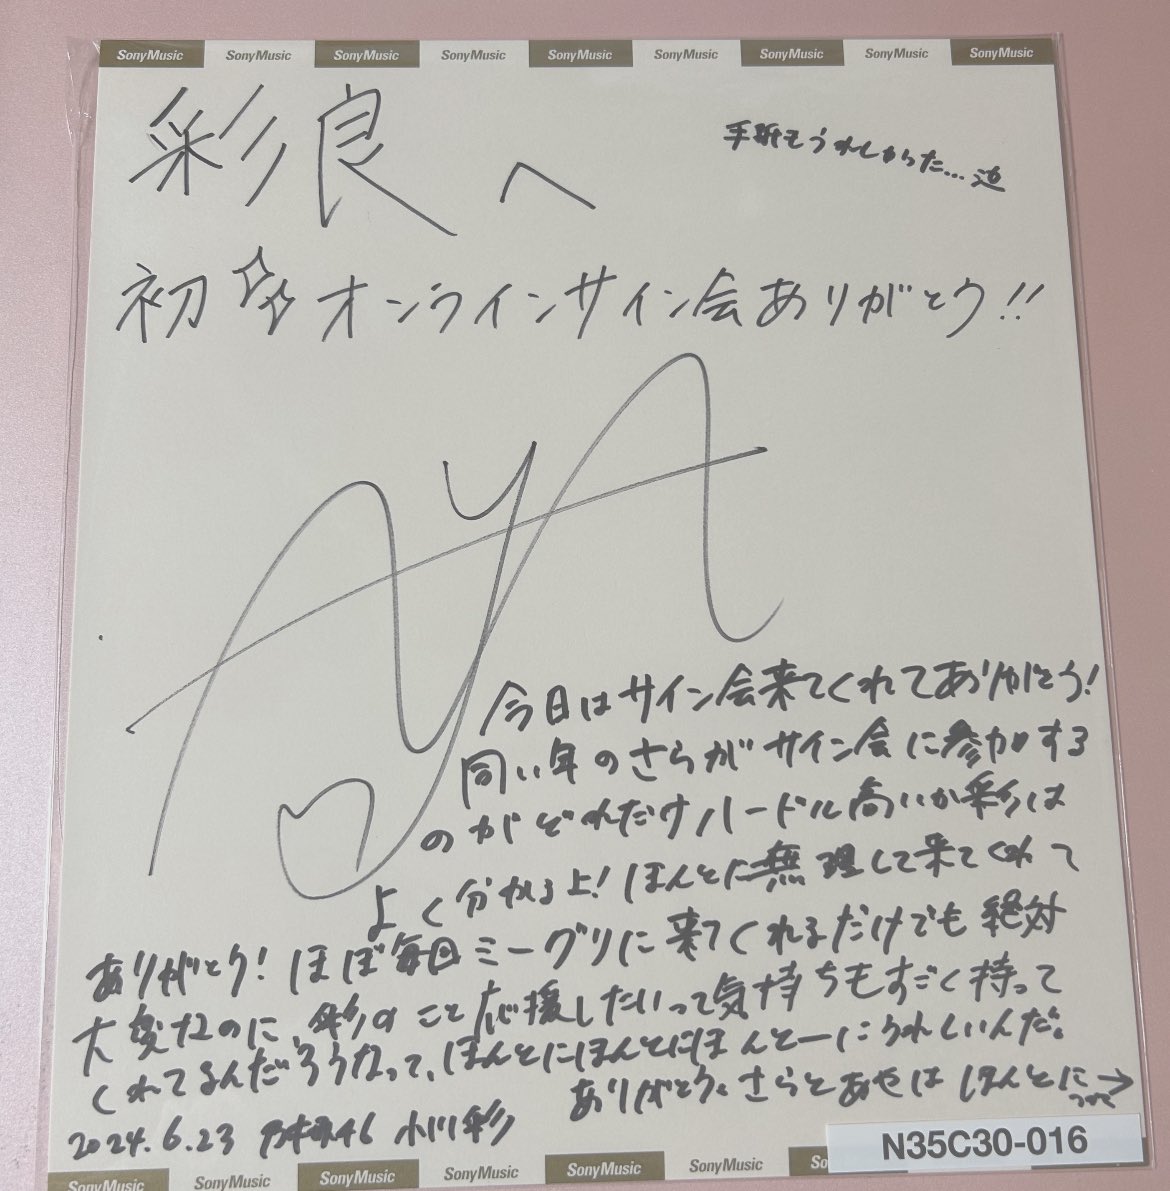 SonyMusic SonyMusic SonyMusic SonyMusic SonyMusic SonyMusic SonyMusic SonyMusic SonyMusic
彩良へ
手紙もうれしかった…
初オンラインサイン会ありがとう!!
AYA
今日はサイン会来てくれてありがとう!
同い年のさらがサイン会に参加する
のがどれだけハードル高いか彩は
よく分かるよ!ほんとに無理して来てくれて
ありがとう!ほぼ毎回ミーグリに来てくれるだけでも絶対
大変なのに、彩のこと応援したいって気持ちもすごく持って
くれてるんだろうなって、ほんとにほんとにほんとーにうれしいんだ。
ありがとう、さらとあやはほんとに→
2024.6.23 乃木坂46 小川彩
N35C30-016
SonyMusic SonyMusic SonyMusic SonyMusic SonyMusic SonyMusic SonyMusic So